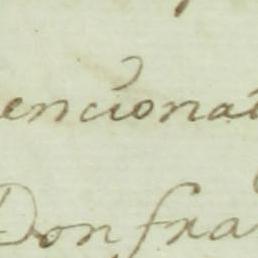 encionat
Don fra